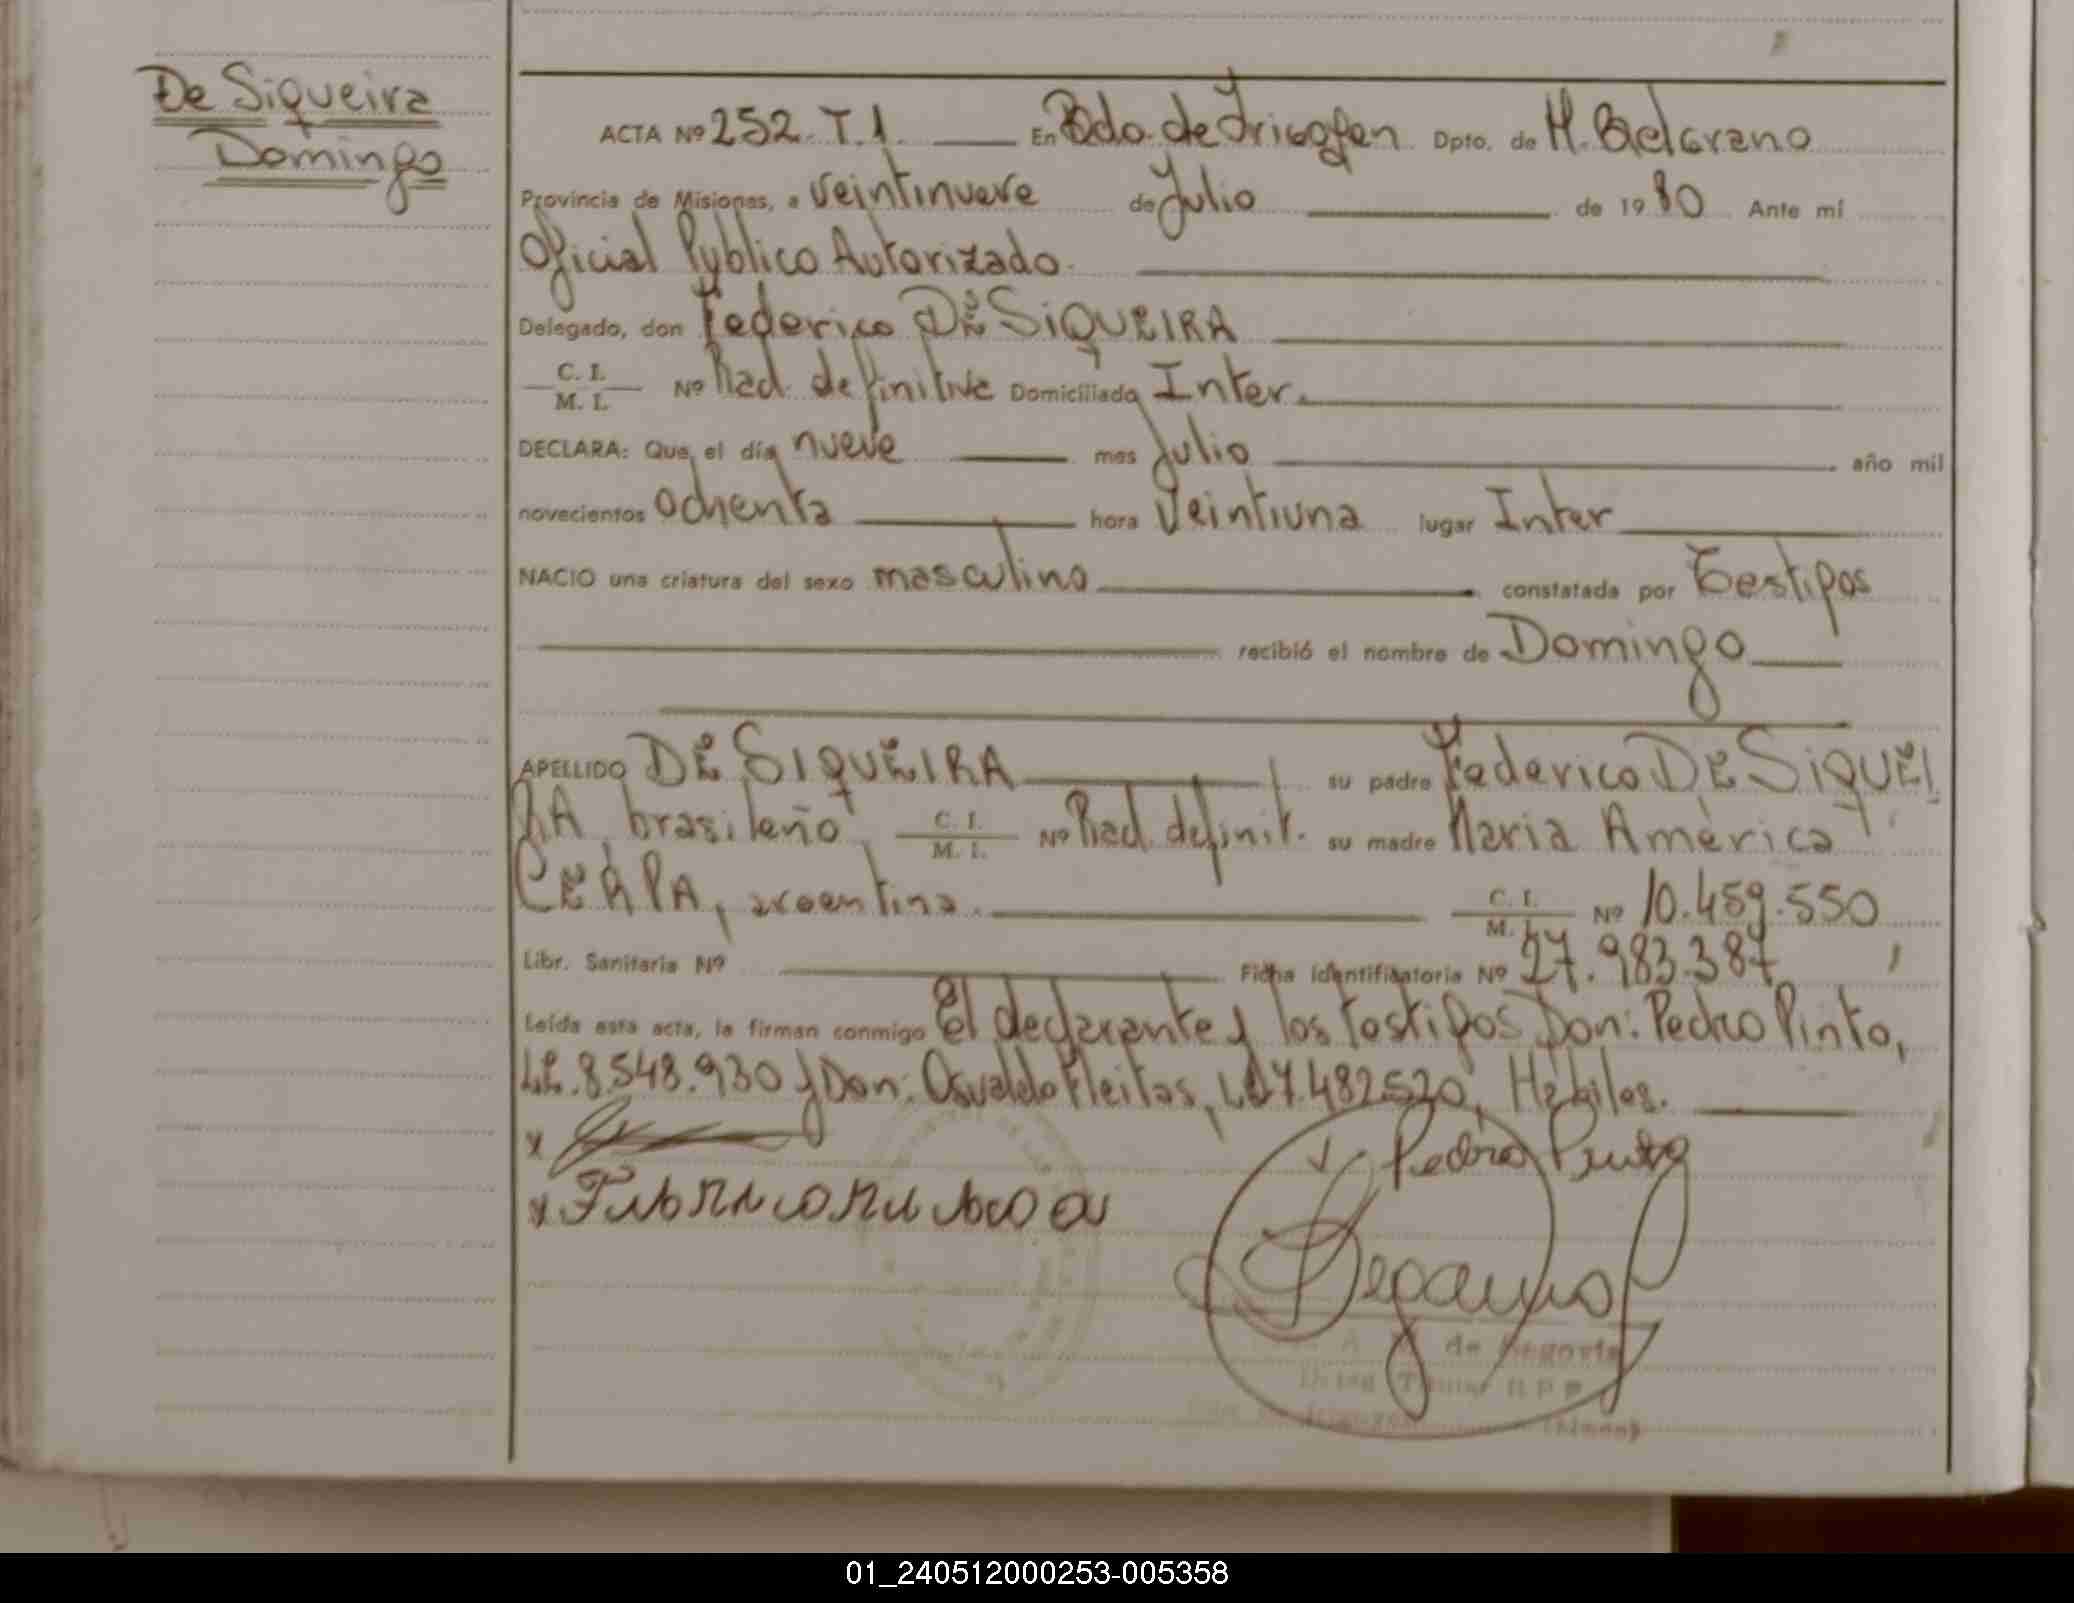 De Siqueira
Domingo
ACTA Nº 252. T. 1. En Bdo. de Irigoyen Dpto. de M. Belgrano
Provincia de Misiones, a veintinueve de Julio de 1980 Ante mí
Oficial Público Autorizado.
Delegado, don Federico DE SIQUEIRA
C. I.
M. I. Nº Rad. definitiva Domiciliado Inter.
DECLARA: Que, el día nueve mes Julio año mil
novecientos ochenta hora Veintiuna lugar Inter
NACIO una criatura del sexo masculino constatada por Testigos
recibió el nombre de Domingo
APELLIDO DE SIQUEIRA su padre Federico DE SIQUEI
RA, brasileño, C. I. M. I. Nº Rad. definit. su madre Maria América
CERPA, argentina. C. I. M. I. Nº 10.459.550
Libr. Sanitaria Nº Ficha identificatoria Nº 27.983.387
Leída esta acta, la firman conmigo El declarante y los testigos Don: Pedro Pinto,
L.E. 8.548.930 y Don: Osvaldo Fleitas, L.E. 7.482.520, Hábiles.
x
x
Pedro Pinto
de Segovia
Titular
01_240512000253-005358